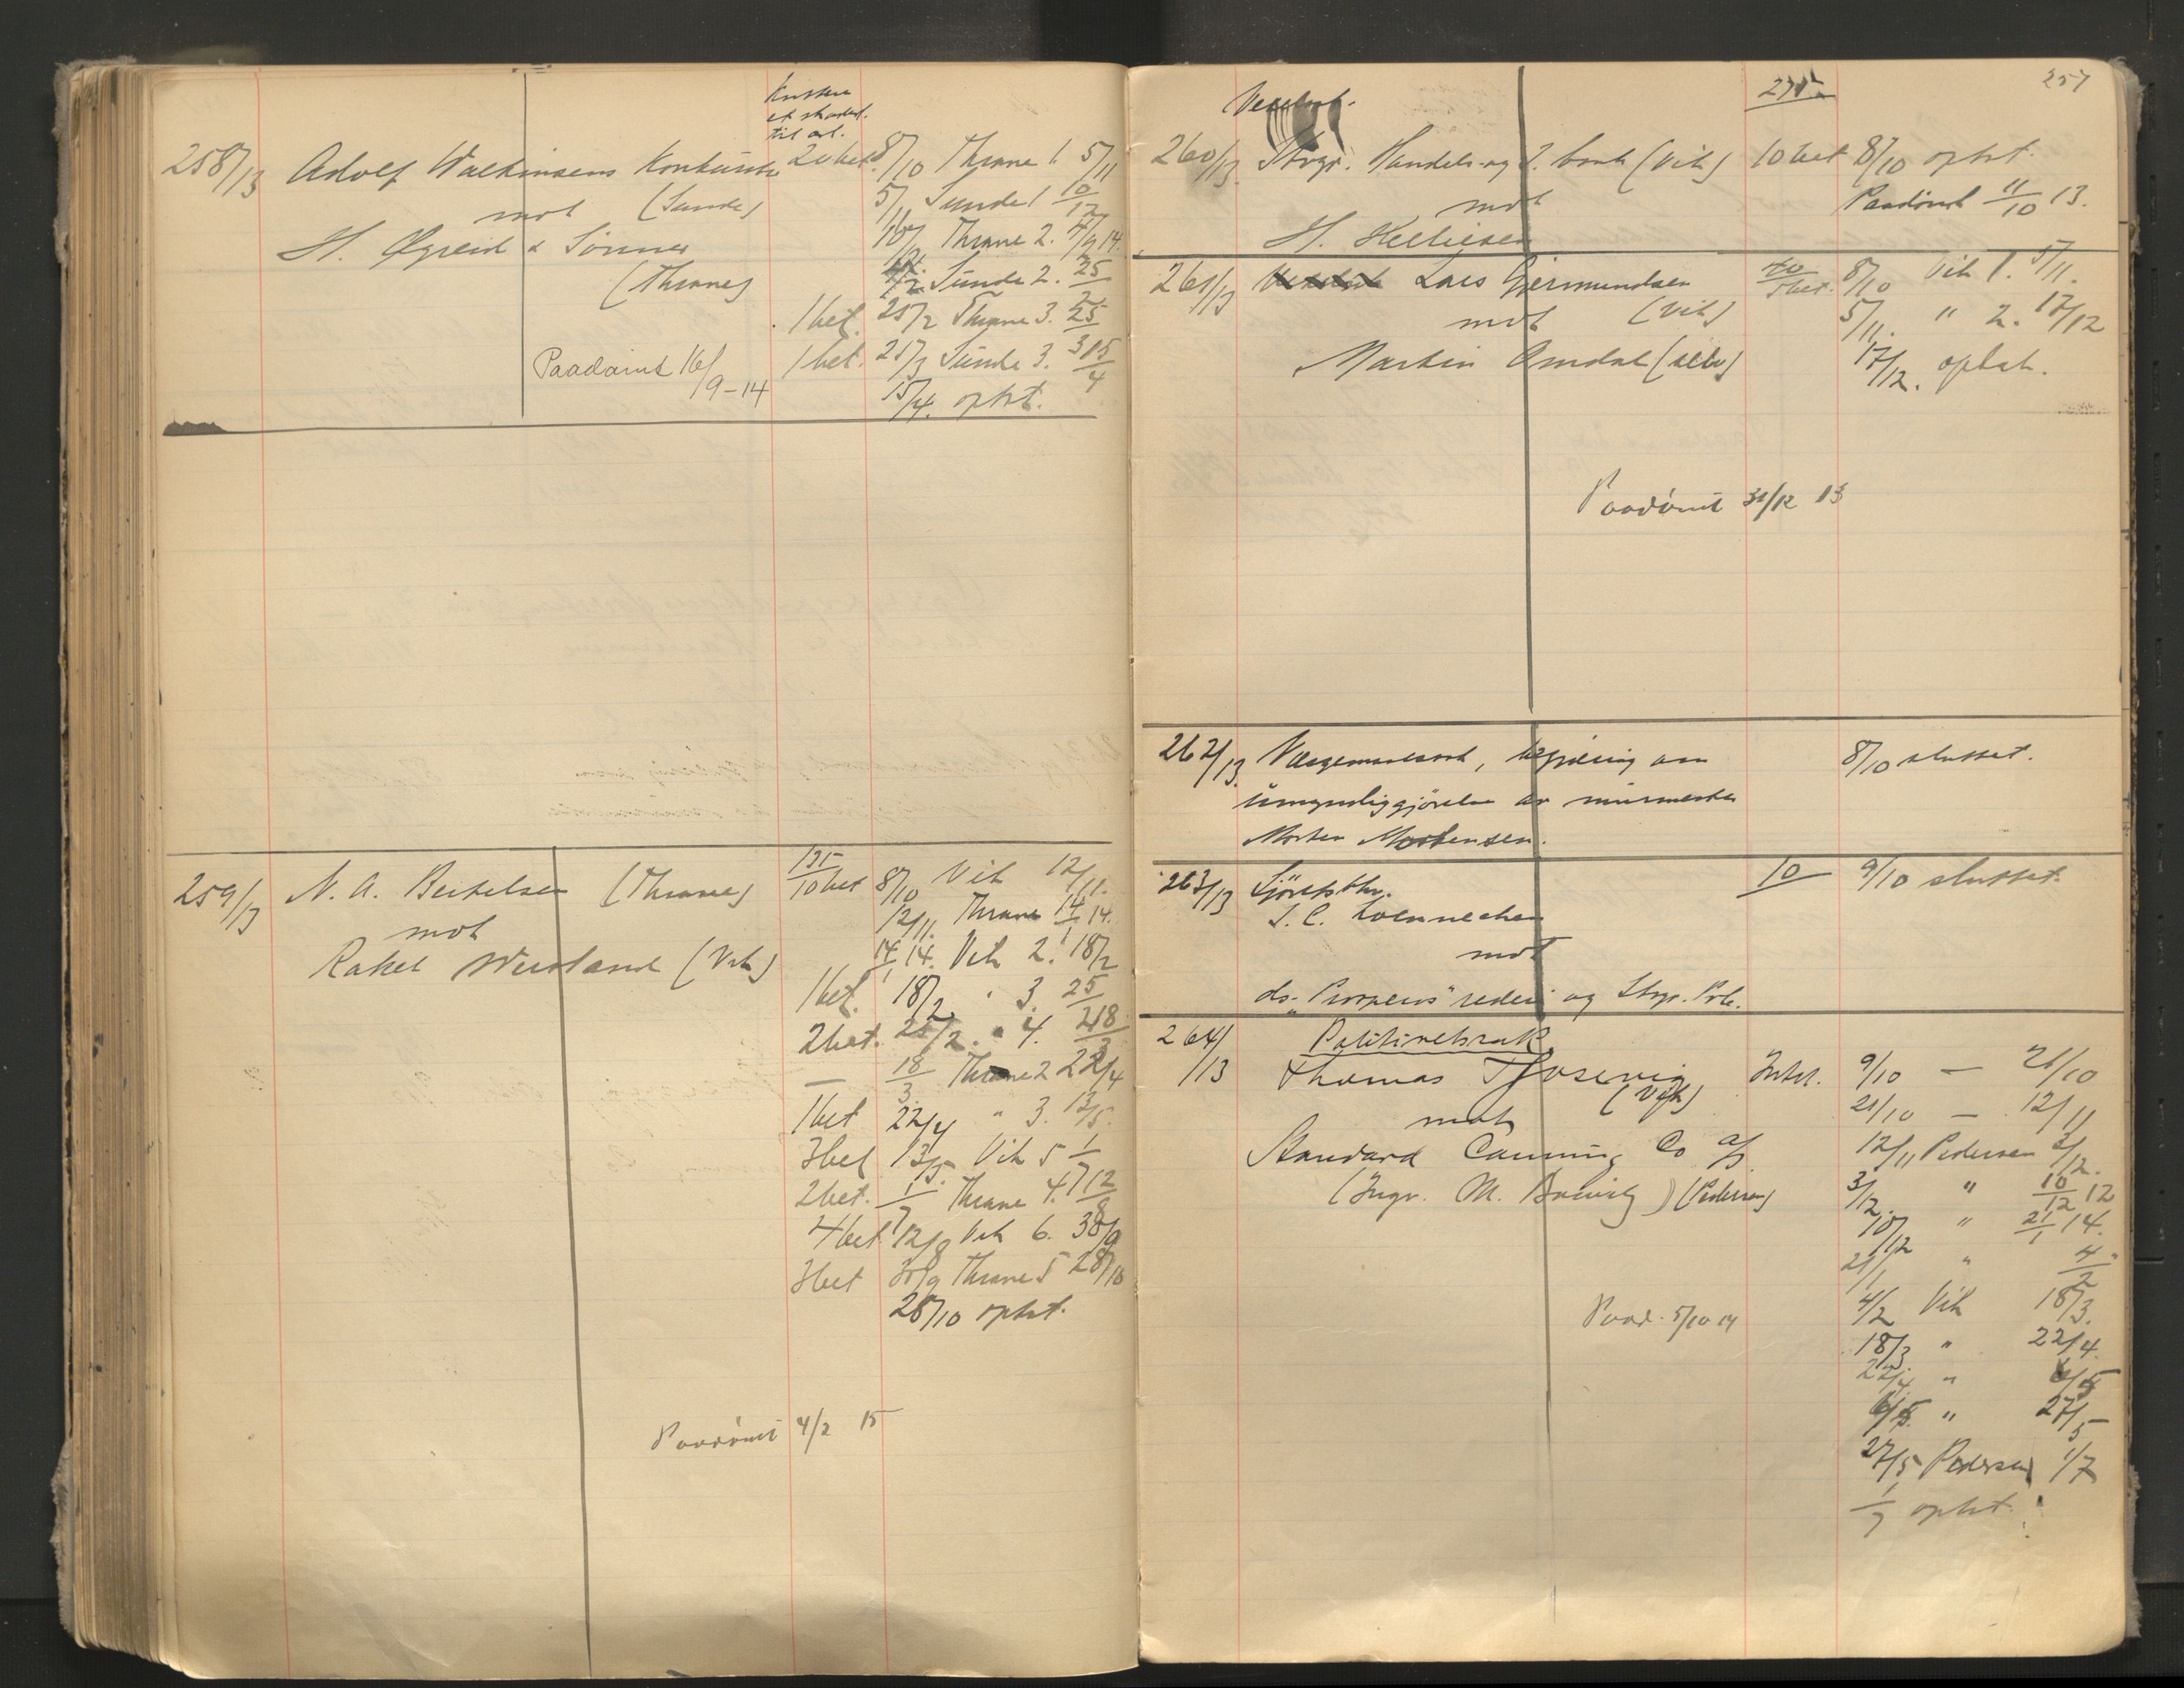 258/13 Adolf Walkinsens Konkursbo 20 bet. 8/10 Thrane 1. 5/11
mot (Sunde) 5/11 Sunde 1 10/12
H. Øgreid & Sønner 10/12 Thrane 2. 14.
(Thrane) Sunde 2. 25/2
1 bet. 25/2 Thrane 3. 25/3
Paadømt 16/9-14 1 bet. 25/3 Sunde 3. 15/4
15/4. optat.
259/13 N. A. Bertelsen (Thrane) 10 bet 8/10 Vik 12/11.
mot 12/11. Thrane 14/1 14.
Rakel Westland (Vik) 14/1 14. Vik 2. 18/2
1 bet. 18/2 " 3. 25/2
2 bet. 25/2. " 4. 18/3
— 18/3. Thrane 2 22/4
1 bet 22/4 " 3. 13/5.
3 bet 13/5. Vik 5 1/7
2 bet. 1/7 Thrane 4. 12/8
4 bet 12/8 Vik 6. 30/9
3 bet 30/9 Thrane 5 28/10
28/10 optat.
Paadømt 4/2 15
257
260/13 Stvgr. Handels- og I. bank (Vik) 10 bet 8/10 optat.
mot Paadømt 11/10 13.
H. Helliesen
261/13 Lars Gjermundsen 5 bet. 8/10 Vik 1. 5/11.
mot (Vik) 5/11. " 2. 17/12
Martin Omdal (selv) 17/12. optat.
Paadømt 31/12 13
262/13 Værgemaalssak, begjæring om 8/10 sluttet.
umyndiggjørelse av murmester
Morten Mortensen.
263/13 Sjørettsthr. 10 9/10 sluttet.
S. C. Loennechen
mot
ds. "Prosperos" rederi og Stvgr. Priv.
264/13 Politivedtak
Thomas Tjøsevig 9/10 — 21/10
(Vik) 21/10 — 12/11
mot
Standard Canning Co a/s 12/11 Pedersen 3/12.
(Ingv. M. ) (Pedersen) 3/12. " 10/12 12
10/12 " 21/1 14.
21/1 " 4/2 "
4/2 Vik 18/3.
Paad. 5/10 14
18/3. " 22/4.
22/4. " 6/5
6/5. " 27/5
27/5 Pedersen 1/7
1/7 optat.